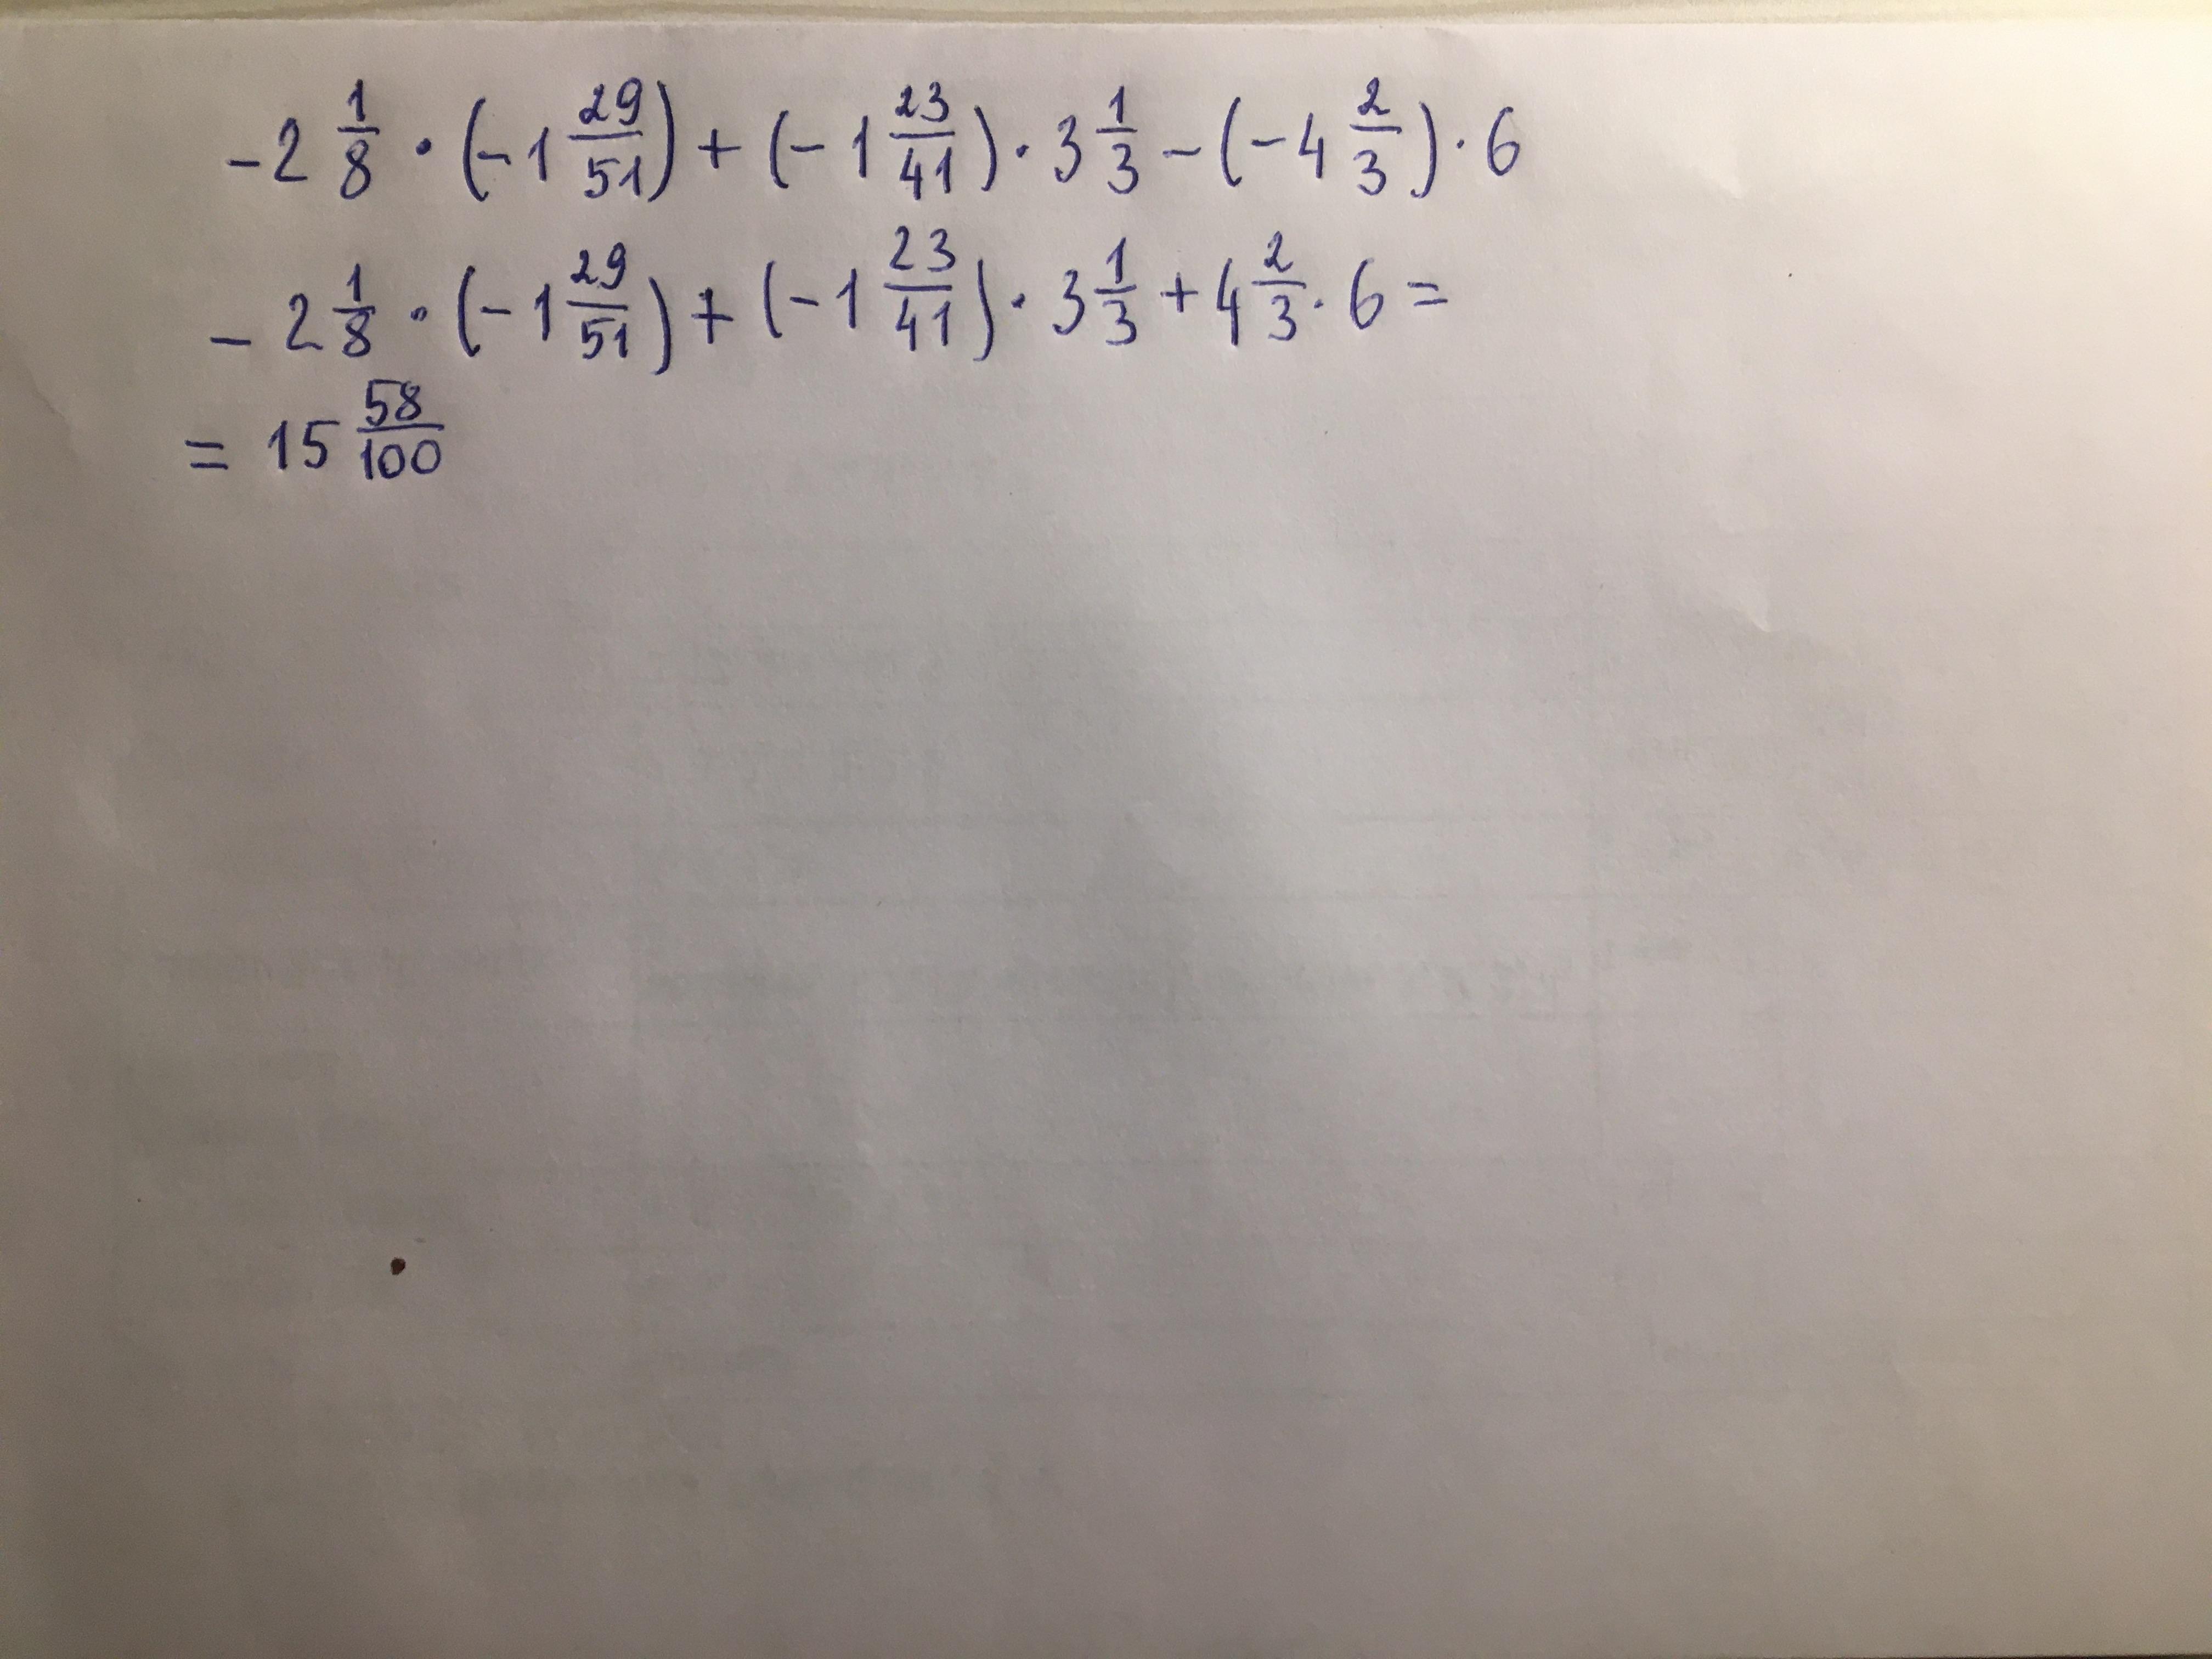 -2 1/8 · (-1 29/51) + (-1 23/41) · 3 1/3 - (-4 2/3) · 6
- 2 1/8 · (-1 29/51) + (-1 23/41) · 3 1/3 + 4 2/3 · 6 =
= 15 58/100